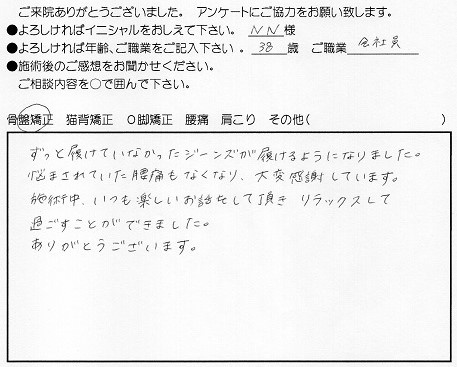 ご来院ありがとうございました。 アンケートにご協力をお願い致します。
●よろしければイニシャルをおしえて下さい。 NN 様
●よろしければ年齢、ご職業をご記入下さい 。 38 歳 ご職業 会社員
●施術後のご感想をお聞かせください。
ご相談内容を○で囲んで下さい。
骨盤矯正 猫背矯正 O脚矯正 腰痛 肩こり その他( )
ずっと履けていなかったジーンズが履けるようになりました。
悩まされていた腰痛もなくなり、大変感謝しています。
施術中、いつも楽しいお話をして頂き リラックスして
過ごすことができました。
ありがとうございます。